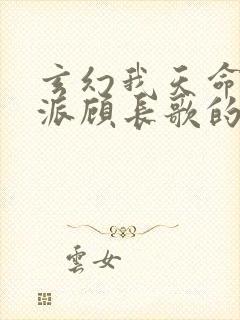 玄幻我天命
派顾长歌的
雲女